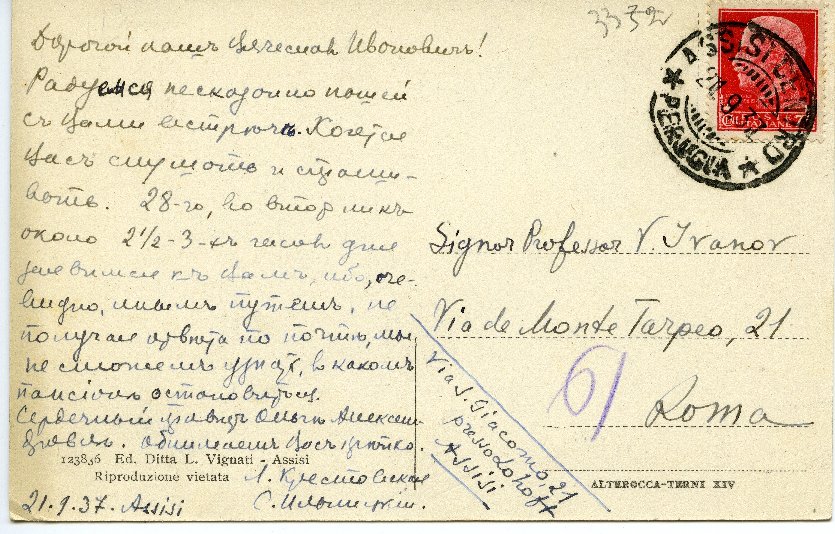 3332
Дорогой нашъ Вячеславъ Ивановичъ!
Радуемся несказанно нашей
съ Вами встрѣчѣ. Хочется
Васъ слушать и спраши-
вать. 28-го, во вторникъ
около 2 1/2-3-хъ часовъ дня
явимся къ Вамъ, ибо, оче-
видно, инымъ путемъ, не
получая отвѣта по почтѣ, мы
не сможемъ узнать, в какомъ
пансіонѣ остановиться.
Сердечный привѣтъ Ольгѣ Алексан-
дровнѣ. Обнимаемъ Васъ крѣпко.
123856 Ed. Ditta L. Vignati - Assisi
Riproduzione vietata
Л. Крестовская
21.9.37. Assisi
С. Ильницкій.
ASSISI CENTRO
PERUGIA
Signor Professor V. Ivanov
Via de Monte Tarpeo, 21
61
Roma
Via S. Giacomo, 21
presso Lohoff
Assisi
ALTEROCCA-TERNI XIV